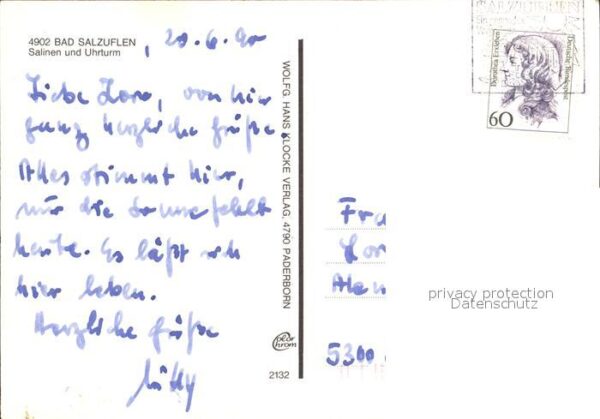 4902 BAD SALZUFLEN
Salinen und Uhrturm
, 20.6.90
Liebe Lore, von hier
ganz herzliche Grüße.
Alles stimmt hier,
nur die Sonne fehlt
heute. Es läßt sich
hier leben.
Herzliche Grüße
WOLFG. HANS KLOCKE VERLAG, 4790 PADERBORN
2132
Dorothea Erxleben
Deutsche Bundespost
60
Fra
Lor
5300
privacy protection
Datenschutz